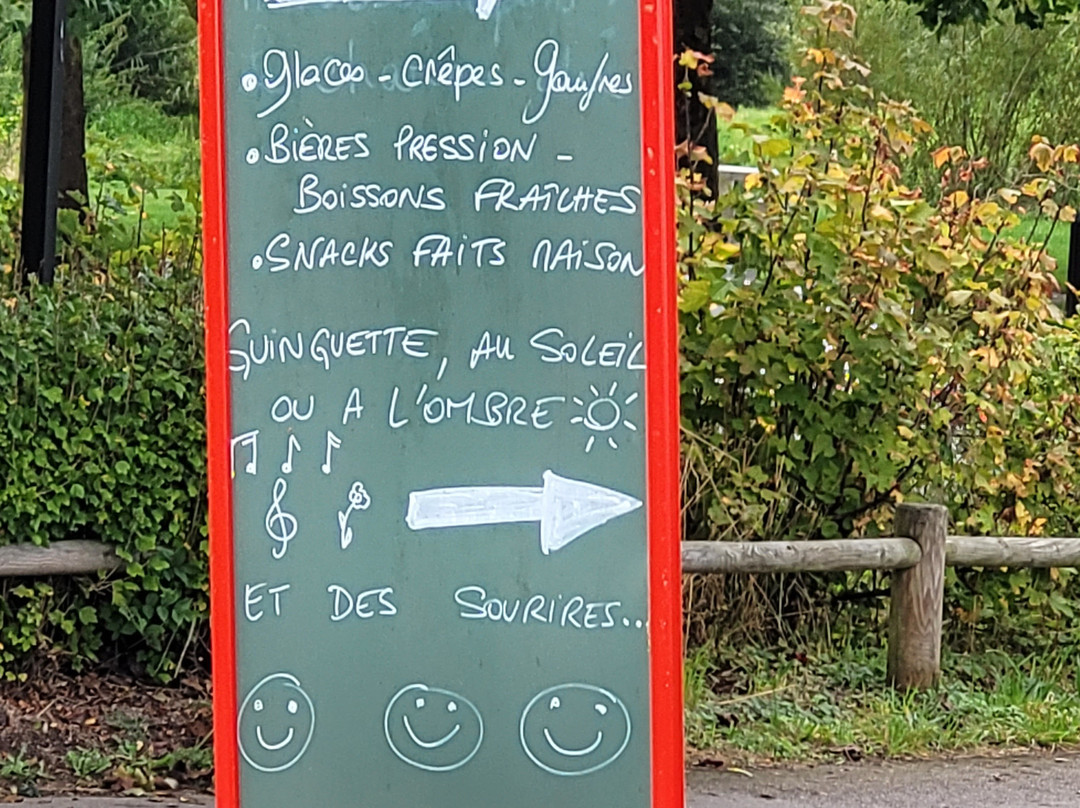 • Glaces - Crêpes - Gaufres
• BIÈRES PRESSION -
BOISSONS FRAÎCHES
• SNACKS FAITS MAISON
GUINGUETTE, AU SOLEIL
OU A L'OMBRE
ET DES SOURIRES...